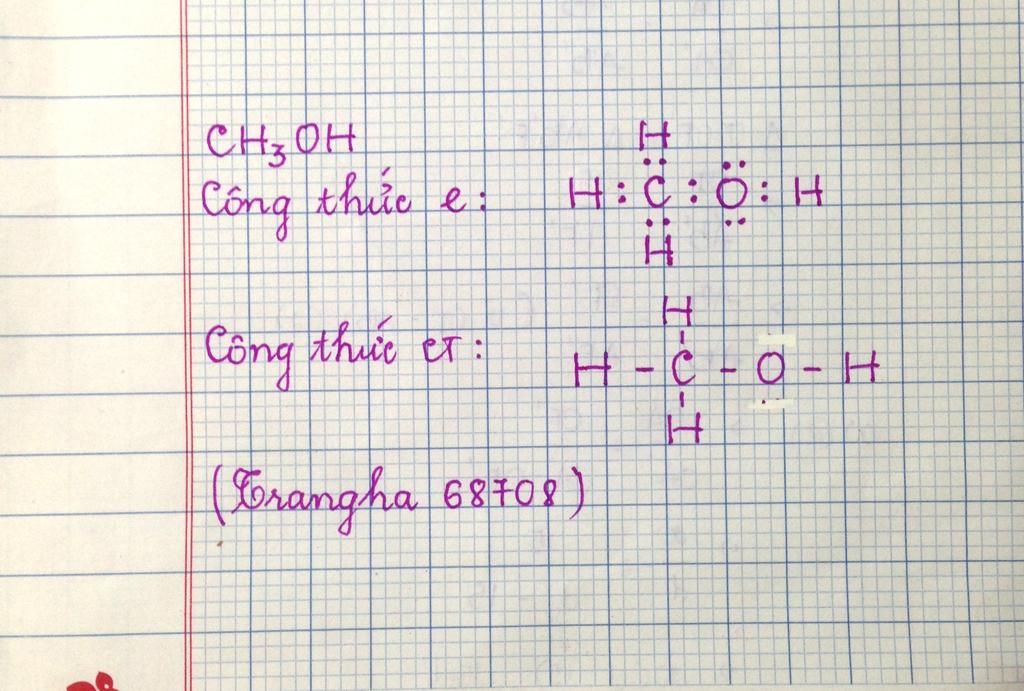 CH₃OH
H
Công thức e: H : C : O : H
H
H
Công thức CT: H - C - O - H
H
(Trangha 68708)